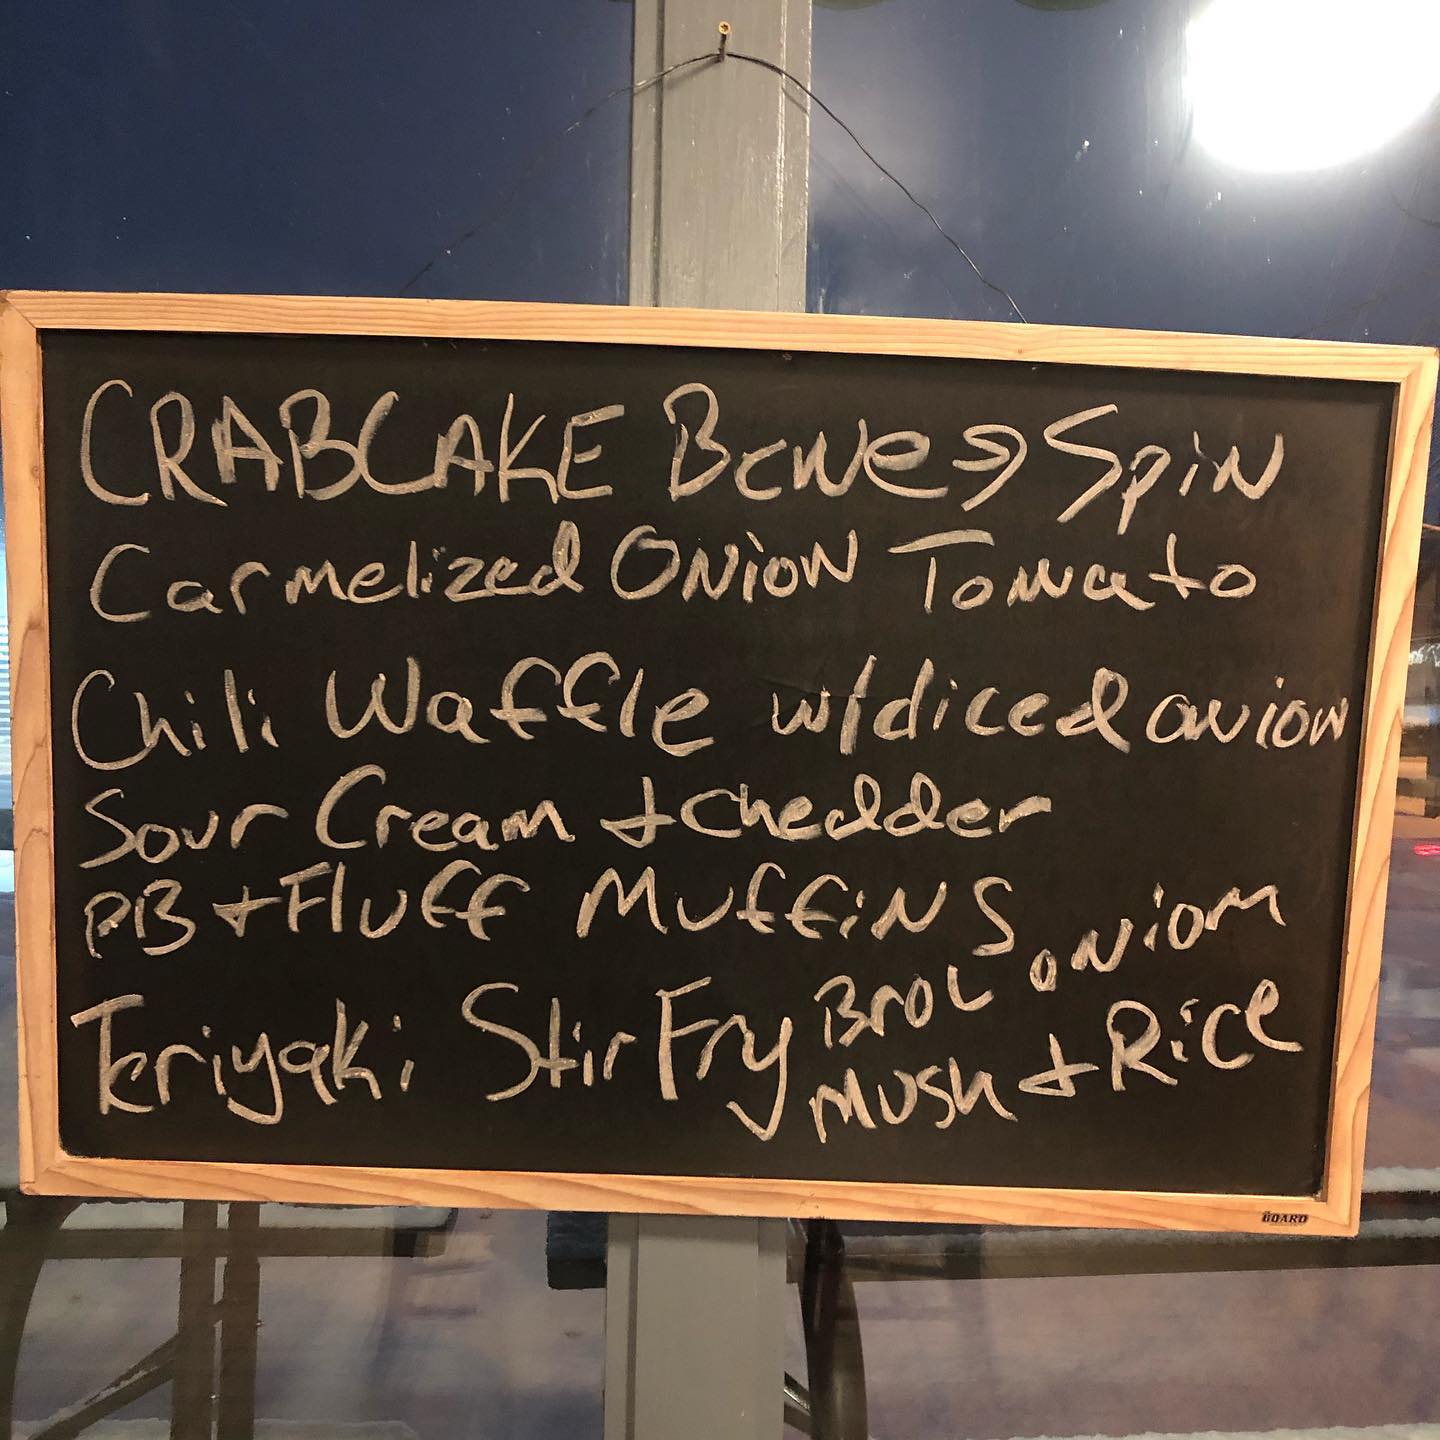 CRABCAKE Bene → Spin
Carmelized Onion Tomato
Chili Waffle w/diced onion
Sour Cream + chedder
PB + Fluff Muffins
Teriyaki Stir Fry Broc onion
Mush + Rice
BOARD